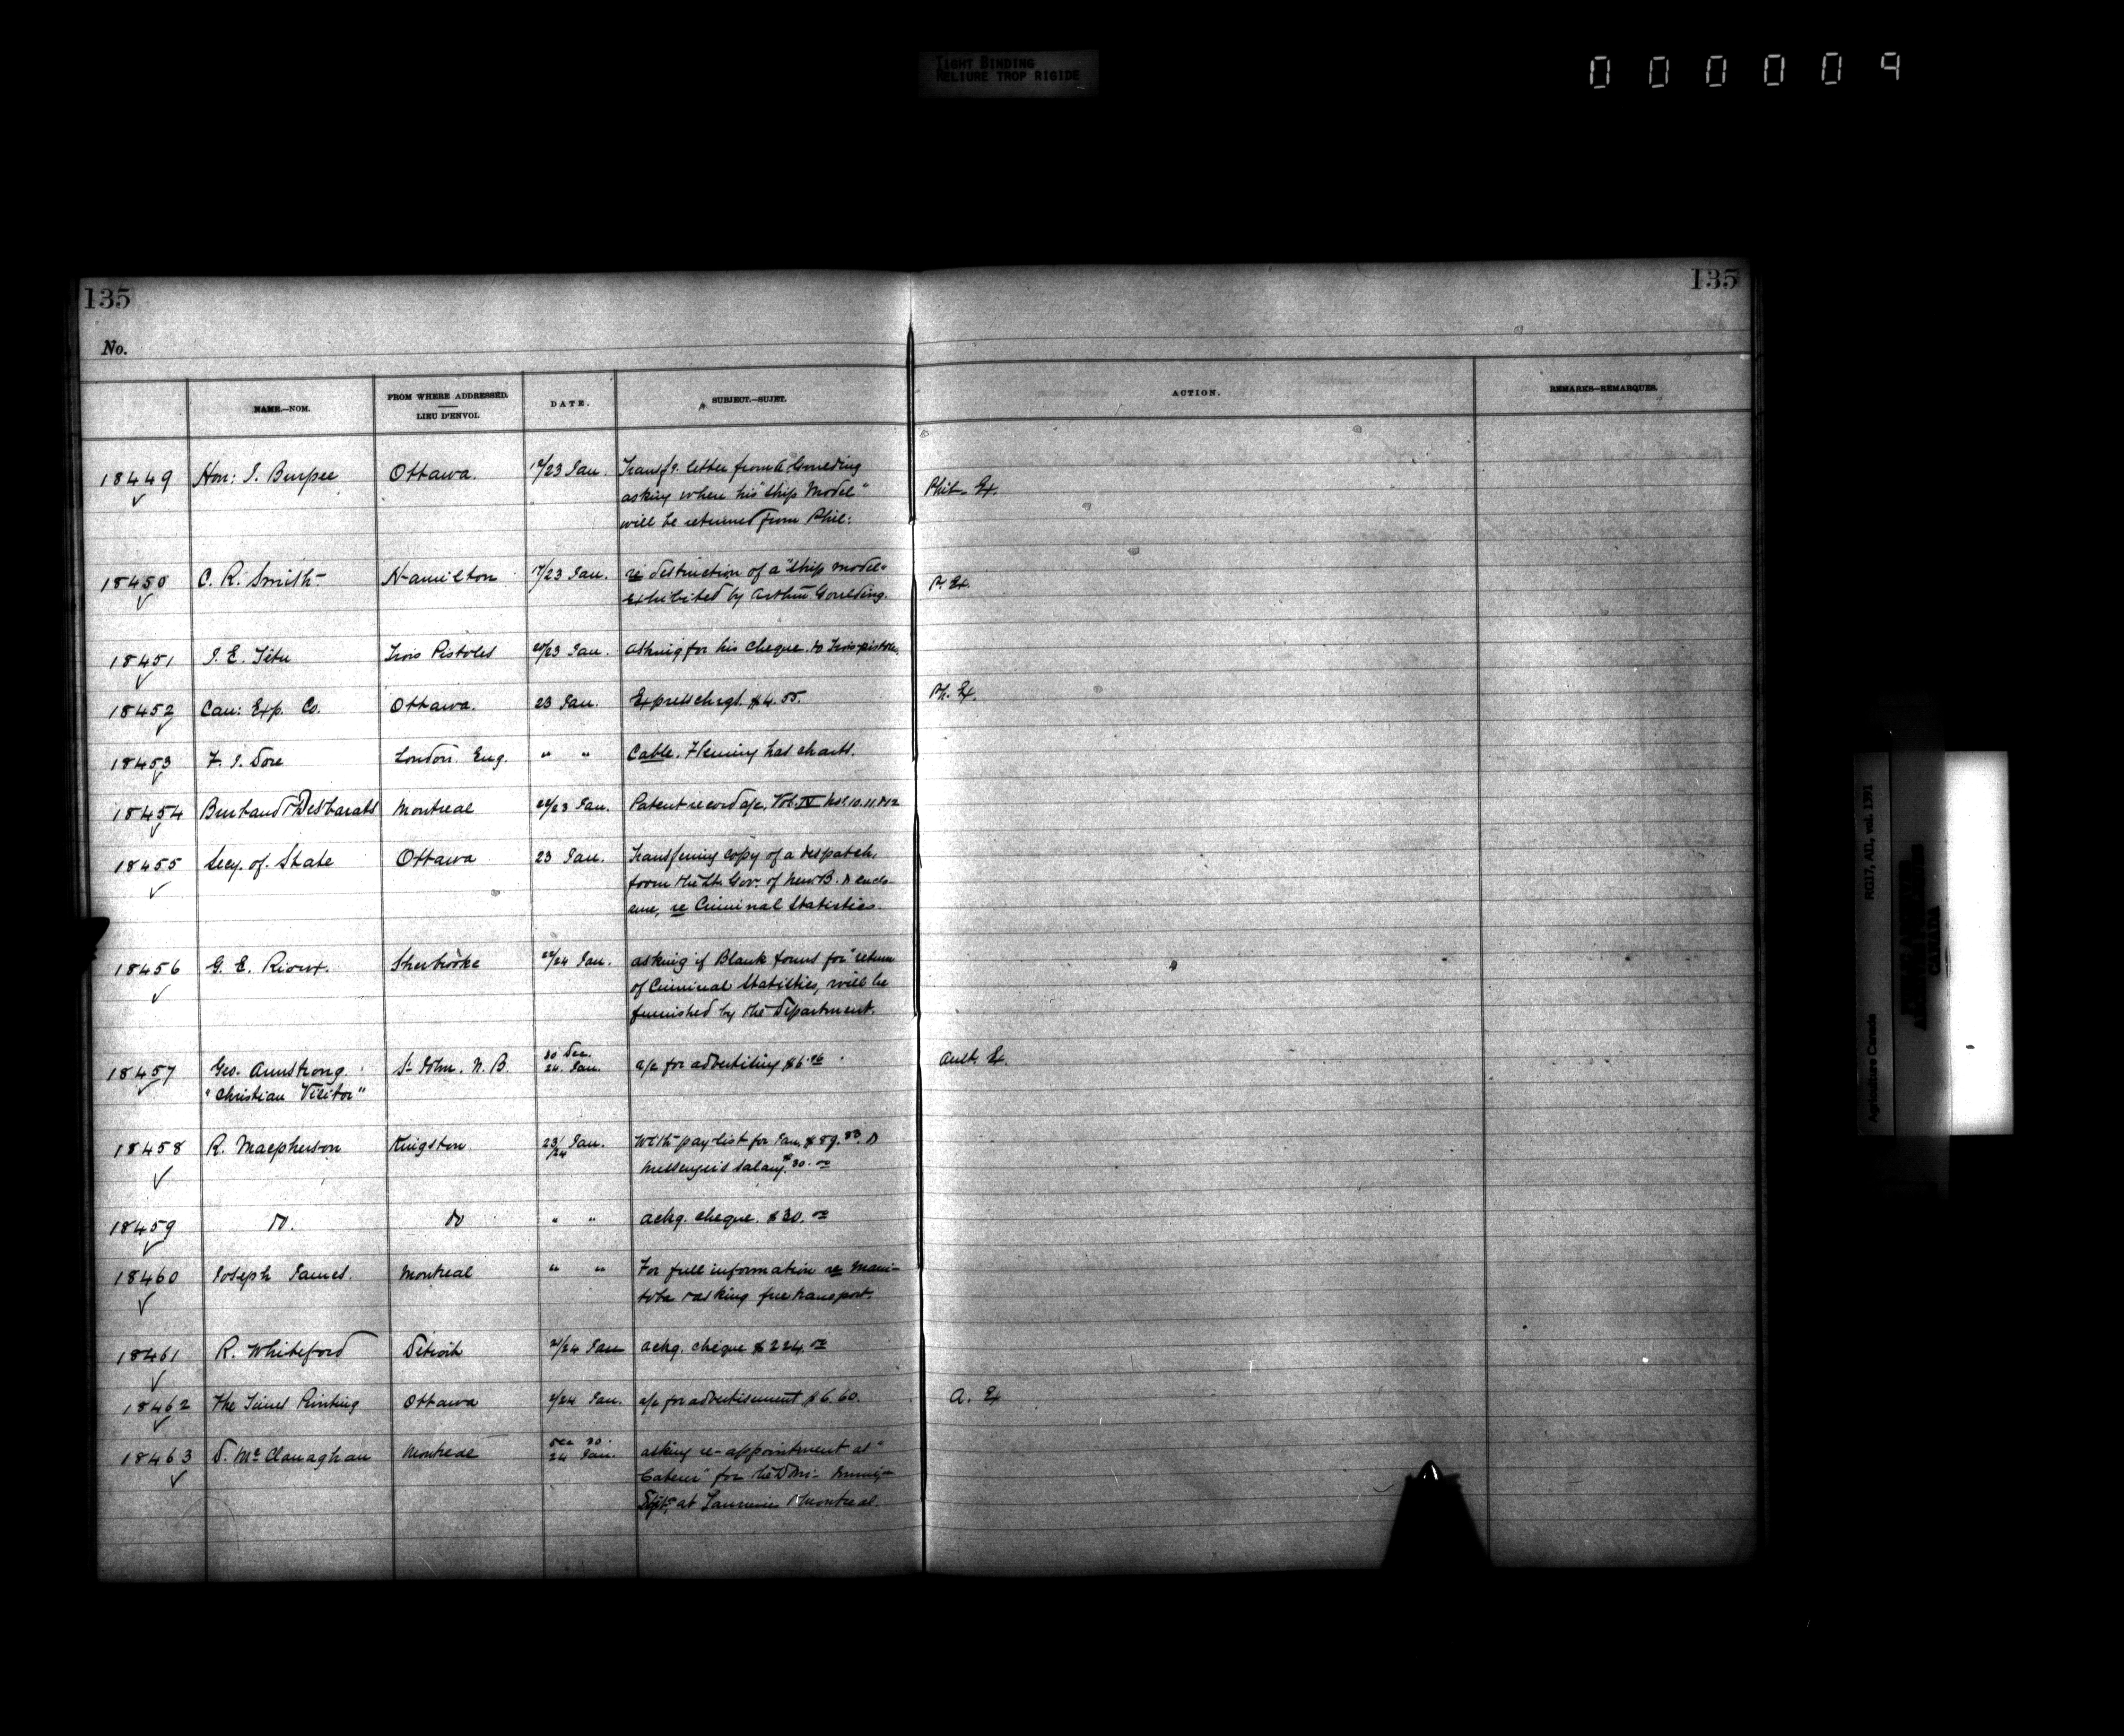 TIGHT BINDING
RELIURE TROP RIGIDE
000009
135
135
No.
NAME.—NOM.
FROM WHERE ADDRESSED.
LIEU D'ENVOI.
DATE.
SUBJECT.—SUJET.
ACTION.
REMARKS—REMARQUES.
18449 Hon: I. Burpee Ottawa. 17/23 Jan. Transfg. letter from A Goulding
asking where his "Ship Model" Phil- Ex.
will be returned from Phil:
18450 C. R. Smith- Hamilton 17/23 Jan. re destruction of a "Ship model"
exhibited by Arthur Goulding. P. Ex.
18451 J. E. Têtu Trois Pistoles 20/23 Jan. asking for his cheque. to Trois-pistoles.
18452 Can: Exp. Co. Ottawa. 23 Jan. Express chrgs. $4.55. Ph. Ex.
18453 F. J. Dore London. Eng. " " Cable. Fleming has charts.
18454 Burland Desbarats Montreal 22/23 Jan. Patent record a/c. Vol. IV Nos. 10. 11. & 12
18455 Secy. of State Ottawa 23 Jan. Transferring copy of a despatch,
from the Lt. Gov. of New B. & enclo-
sure, re Criminal Statistics.
18456 G. E. Rioux. Sherbrooke 22/24 Jan. asking if Blank forms for return
of Criminal Statistics, will be
furnished by the Department.
18457 Geo. Armstrong. St John. N. B. 30 Dec. 24. Jan. a/c for advertising $6.
"Christian Visitor"
18458 R. Macpherson Kingston 23/24 Jan. With pay-list for Jan. $89.83. &
Messenger's Salary. $30.00
18459 do. do " " ackg. cheque. $30.00
18460 Joseph James. Montreal " " For full information re Mani-
toba & asking free transport.
18461 R. Whiteford Detroit 21/24 Jan ackg. cheque $224.00
18462 The Times Printing Ottawa 2/24 Jan. a/c for advertisement $6.60. A. Ex
18463 D. McClanaghan Montreal Dec 30. 24 Jan. asking re-appointment as "
for the
at Tanneries Montreal.
RG17, AII, vol. 1391
Agriculture Canada
CANADA